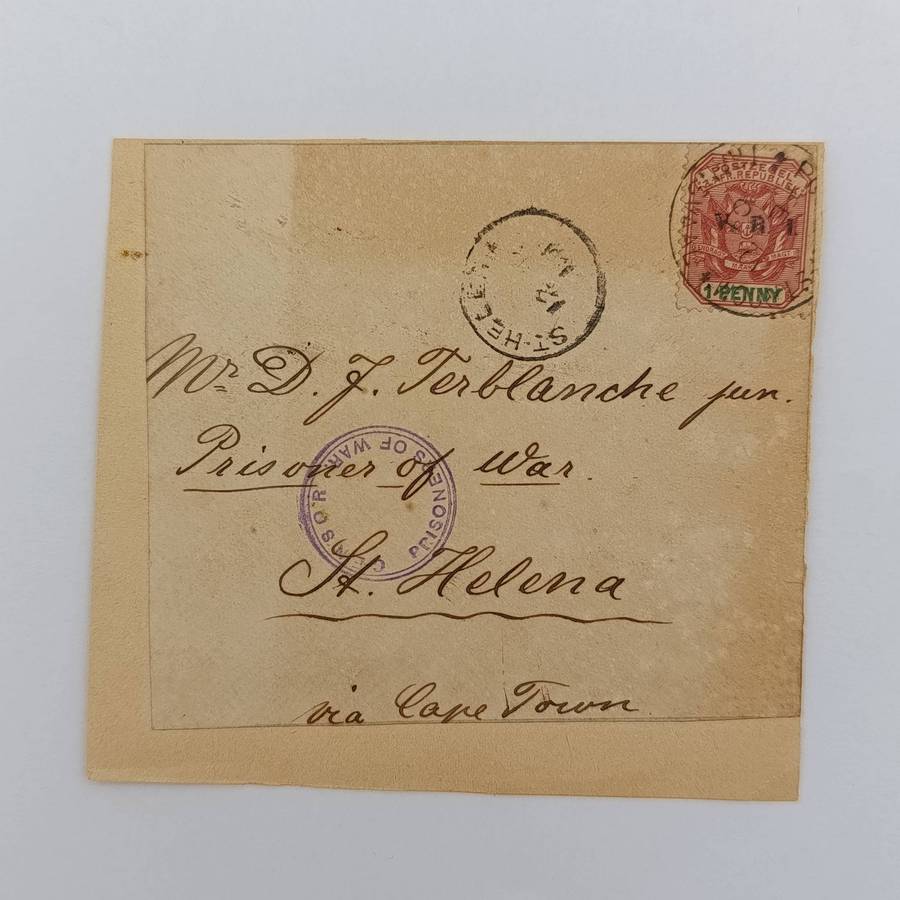 POSTZEGEL
Z. AFR. REPUBLIEK
V. R. I.
1 PENNY
ST. HELENA
Mr D. J. Terblanche jun.
Prisoner of War.
PRISONERS OF WAR
St. Helena
via Cape Town